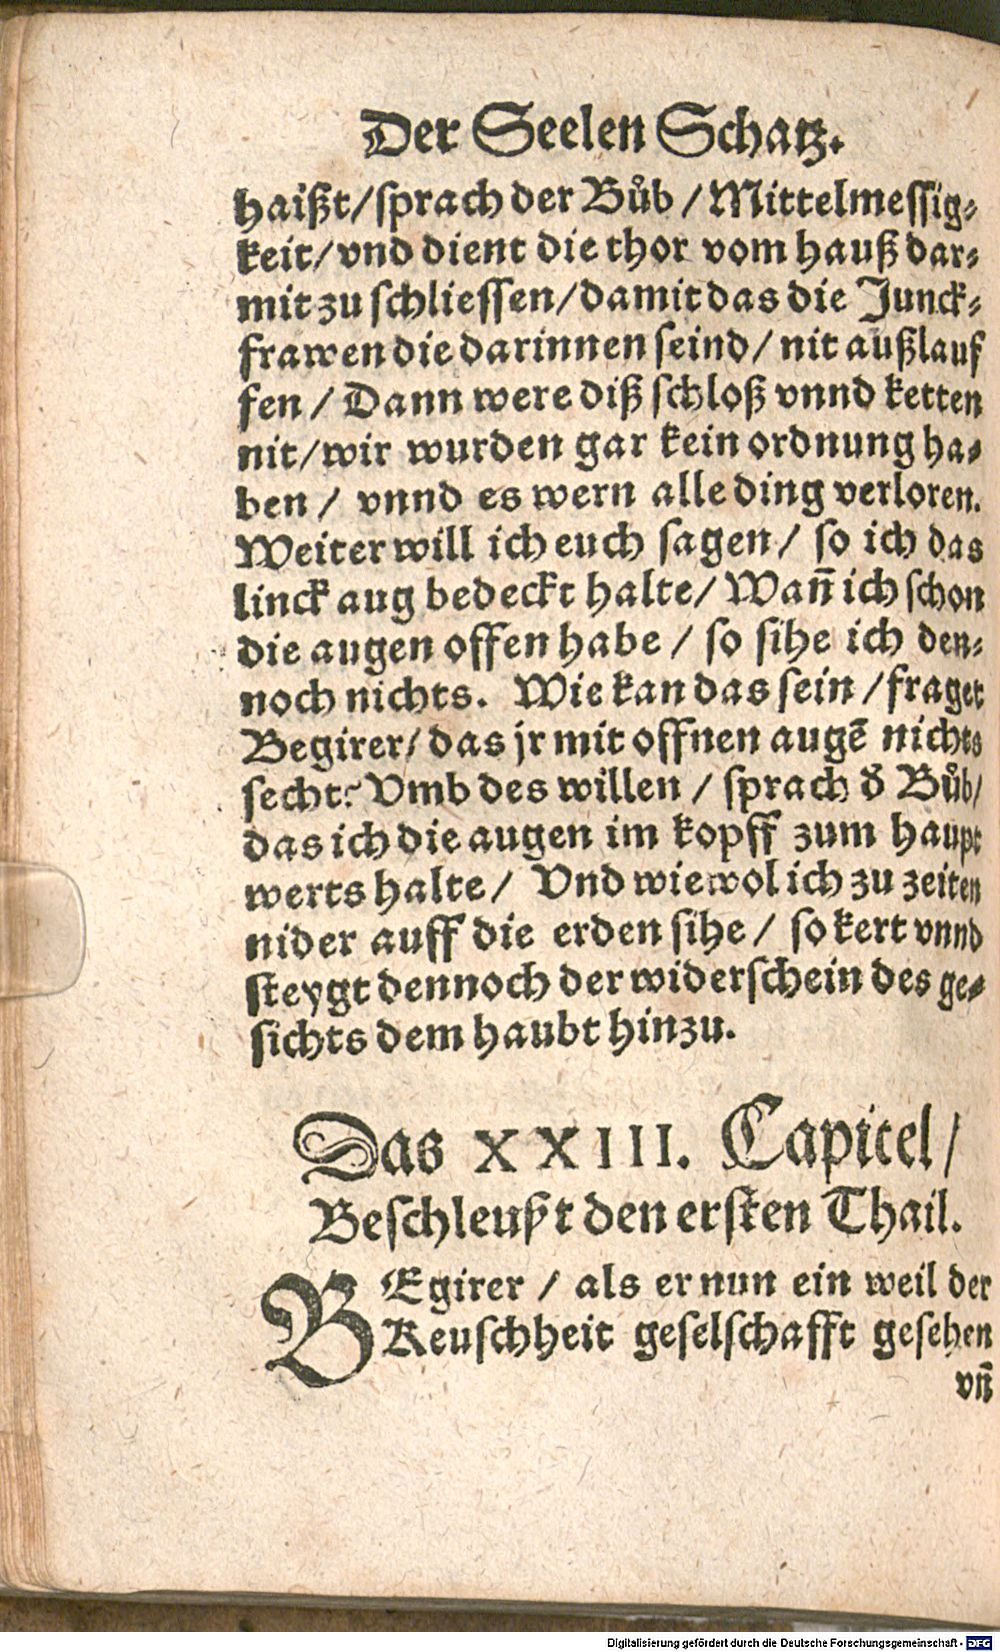 Der Seelen Schatz.
haißt/sprach der Bůb / Mittelmessig⸗
keit/vnd dient die thor vom hauß dar⸗
mit zu schliessen/damit das die Junck⸗
frawen die darinnen seind/ nit außlauf
fen / Dann were diß schloß vnnd ketten
nit/wir wurden gar kein ordnung ha⸗
ben / vnnd es wern alle ding verloren.
Weiter will ich euch sagen/ so ich das
linck aug bedeckt halte/ Wañ ich schon
die augen offen habe / so sihe ich den⸗
noch nichts. Wie kan das sein /fraget
Begirer/ das jr mit offnen augẽ nichts
secht? Vmb des willen / sprach d̓ Bůb/
das ich die augen im kopff zum haupt
werts halte/ Vnd wiewol ich zu zeiten
nider auff die erden sihe / so kert vnnd
steygt dennoch der widerschein des ge⸗
sichts dem haubt hinzu.
Das XXIII. Capitel /
Beschleußt den ersten Thail.
BEgirer / als er nun ein weil der
Keuschheit geselschafft gesehen
vñ
Digitalisierung gefördert durch die Deutsche Forschungsgemeinschaft - DFG